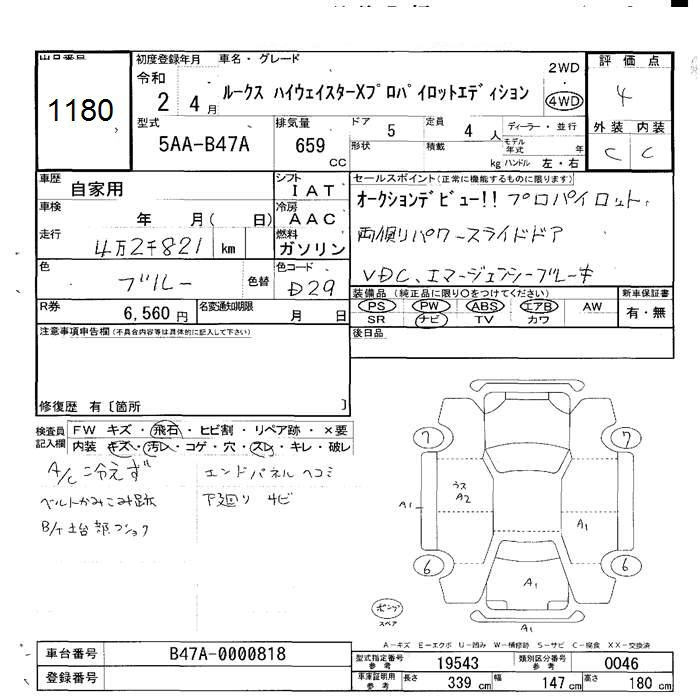 出品番号
1180
初度登録年月
令和
2 4月
車名・グレード
ルークス ハイウェイスターXプロパイロットエディション
2WD
4WD
評価点
4
型式
5AA-B47A
排気量
659 CC
ドア 5
形状
定員 4 人
積載 kg
ディーラー・並行
モデル年式 年
ハンドル 左・右
外装 内装
C C
車歴 自家用
シフト IAT
車検 年 月( 日)
冷房 AAC
走行 4万2千821 km
燃料 ガソリン
色 ブルー 色替
色コード D29
R券 6,560円
名変通知期限 月 日
セールスポイント(正常に機能するものに限ります)
オークションデビュー!! プロパイロット、
両側パワースライドドア
VDC、エマージェンシーブレーキ
装備品(純正品に限り○をつけてください)
PS PW ABS エアB AW
SR ナビ TV カワ
新車保証書
有・無
後日品
注意事項申告欄(不具合内容等は具体的に記入して下さい)
修復歴 有〔箇所 〕
検査員記入欄
FW キズ・飛石・ヒビ割・リペア跡・×要
内装 キズ・汚レ・コゲ・穴・スレ・キレ・破レ
A/C冷えず
ベルトかみこみ跡
B/T土台部コショウ
エンドパネルヘコミ
下廻り サビ
7 7
A1
うス
A2
A1
6 6
A1
A1
ポンプ
スペア
A-キズ E-エクボ U-凹み W-補修跡 S-サビ C-腐食 XX-交換済
車台番号 B47A-0000818
登録番号
型式指定番号参考 19543
類別区分番号参考 0046
車庫証明用参考
長さ 339 cm
幅 147 cm
高さ 180 cm